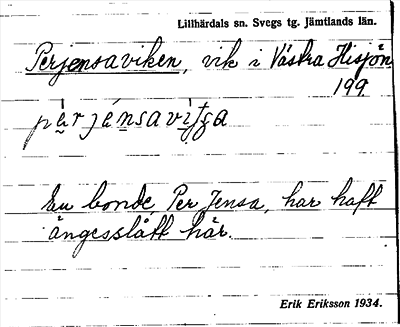 Lillhärdals sn. Svegs tg. Jämtlands län.
Perjensaviken, vik i Västra Hisjön
199.
En bonde, Per Jensa, har haft
ängesslått här.
Erik Eriksson 1934.